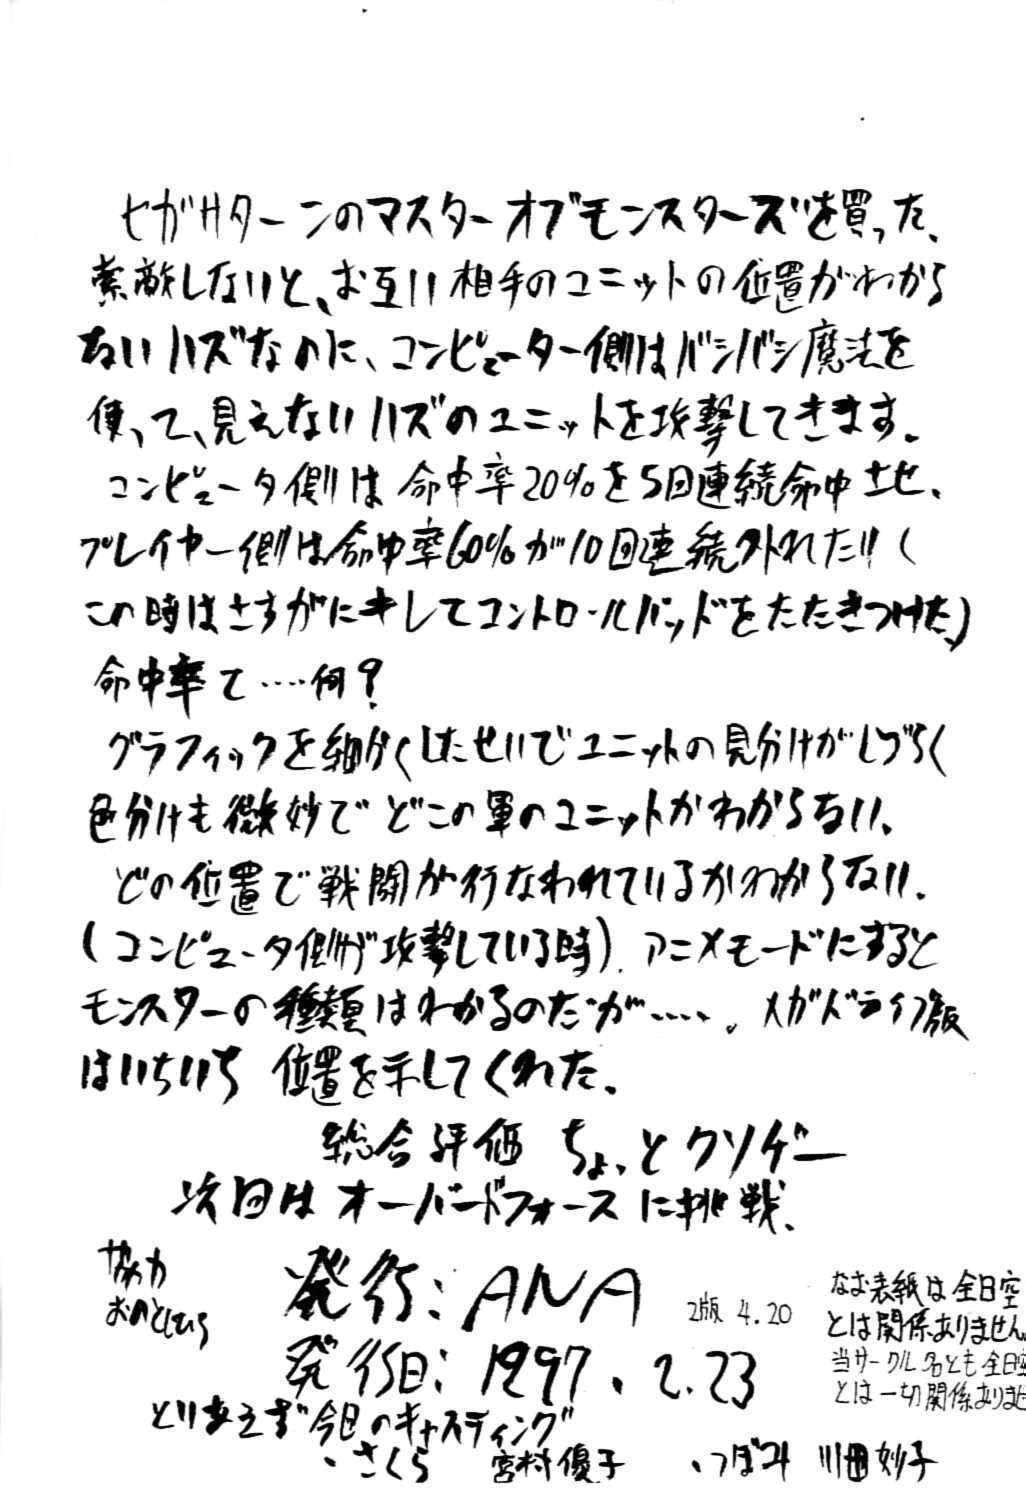 セガサターンのマスターオブモンスターズを買った、
索敵しないと、お互い相手のユニットの位置がわから
ないハズなのに、コンピューター側はバシバシ魔法を
使って、見えないハズのユニットを攻撃してきます。
コンピュータ側は命中率20%を5回連続命中させ、
プレイヤー側は命中率60%が10回連続外れたり(
この時はさすがにキレてコントロールパッドをたたきつけた)
命中率て‥‥何?
グラフィックを細かくしたせいでユニットの見分けがしづらく
色分けも微妙でどこの軍のユニットかわからない、
どの位置で戦闘が行なわれているかわからない、
(コンピュータ側が攻撃している時)、アニメモードにすると
モンスターの種類はわかるのだが‥‥。メガドライブ版
はいちいち位置を示してくれた。
総合評価 ちょっとクソゲー
次回はオーバードフォースに挑戦、
協力
おのとしひろ
発行:ANA
2版 4.20
発行日:1997.2.23
なお表紙は全日空
とは関係ありません。
当サークル名とも全日空
とは一切関係ありませ
とりあえず"今日のキャスティング"
・さくら 宮村優子 ・つぼみ 川田妙子